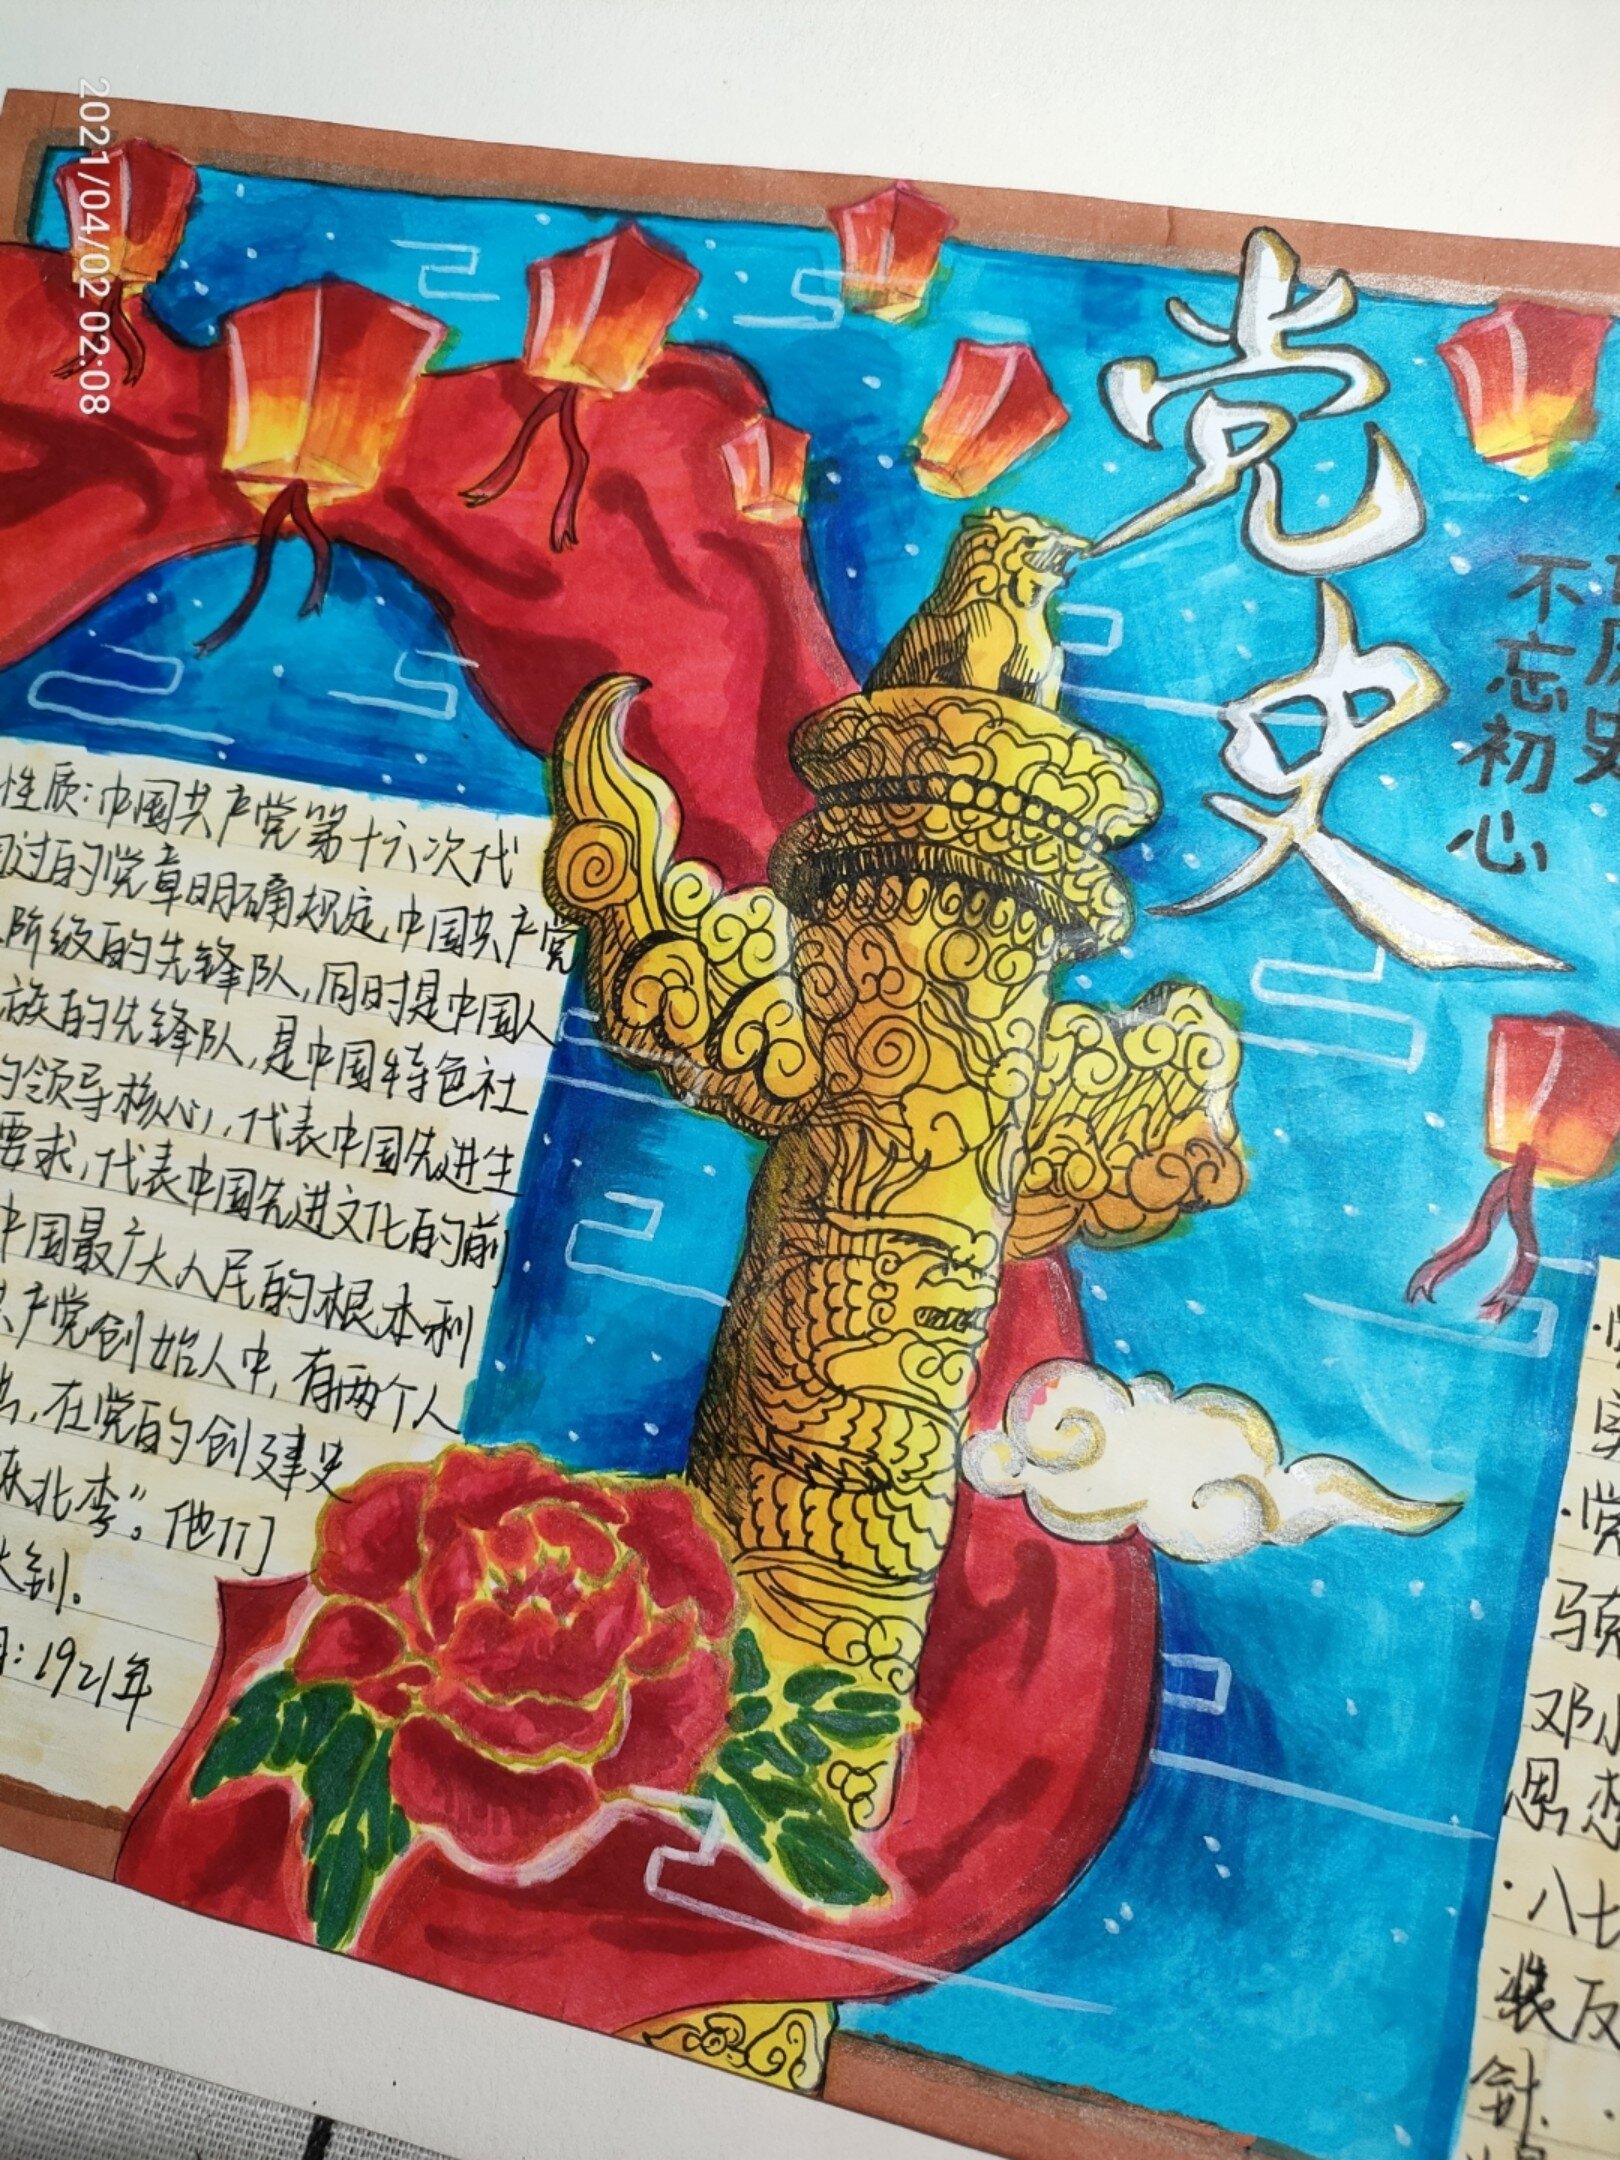 2021/04/02 02:08
党史
不忘初心
性质:中国共产党第十六次代
过的党章明确规定,中国共产党
阶级的先锋队,同时是中国人
族的先锋队,是中国特色社
的领导核心,代表中国先进生
要求,代表中国先进文化的前
中国最广大人民的根本利
共产党创始人中,有两个人
在党的创建史
陈北李"。他们
到。
:1921年
党
马克
邓小
思想
·八七
装反
针.